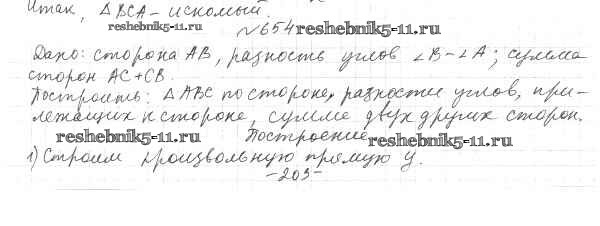 Итак, △BCA - искомый.
reshebnik5-11.ru
№654 reshebnik5-11.ru
Дано: сторона AB, разность углов ∠B-∠A; сумма
сторон AC+CB.
Построить: △ABC по стороне, разности углов, при-
лежащих к стороне, сумме двух других сторон.
reshebnik5-11.ru Построение reshebnik5-11.ru
1) Строим произвольную прямую y.
-203-